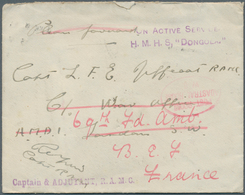 Please forward
ON ACTIVE SERVICE
H. M. H. S. "DONGOLA"
Capt L. F. E. Jeffcoat RAMC
C/o War Office
69th Fd. Amb.
London S W
B. E. F
France
Captain & ADJUTANT, R. A. M. C.